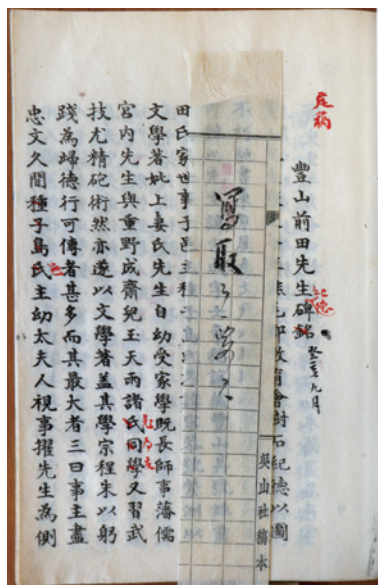 定稿
豐山前田先生碑銘 紀德 癸丑九月
熊毛郡教育會封石紀德以圖
吳山社稿本
寫取
田氏家世事
文學著妣上妻氏先生自幼受家學既長師事藩儒
宮内先生與重野成齋兒玉天雨諸氏同學又習武
技尤精砲術然亦遂以文學著蓋其學宗程朱以躬
踐為歸德行可傳者甚多而其最大者三曰事主盡
忠文久間種子島氏主幼太夫人視事擢先生為側